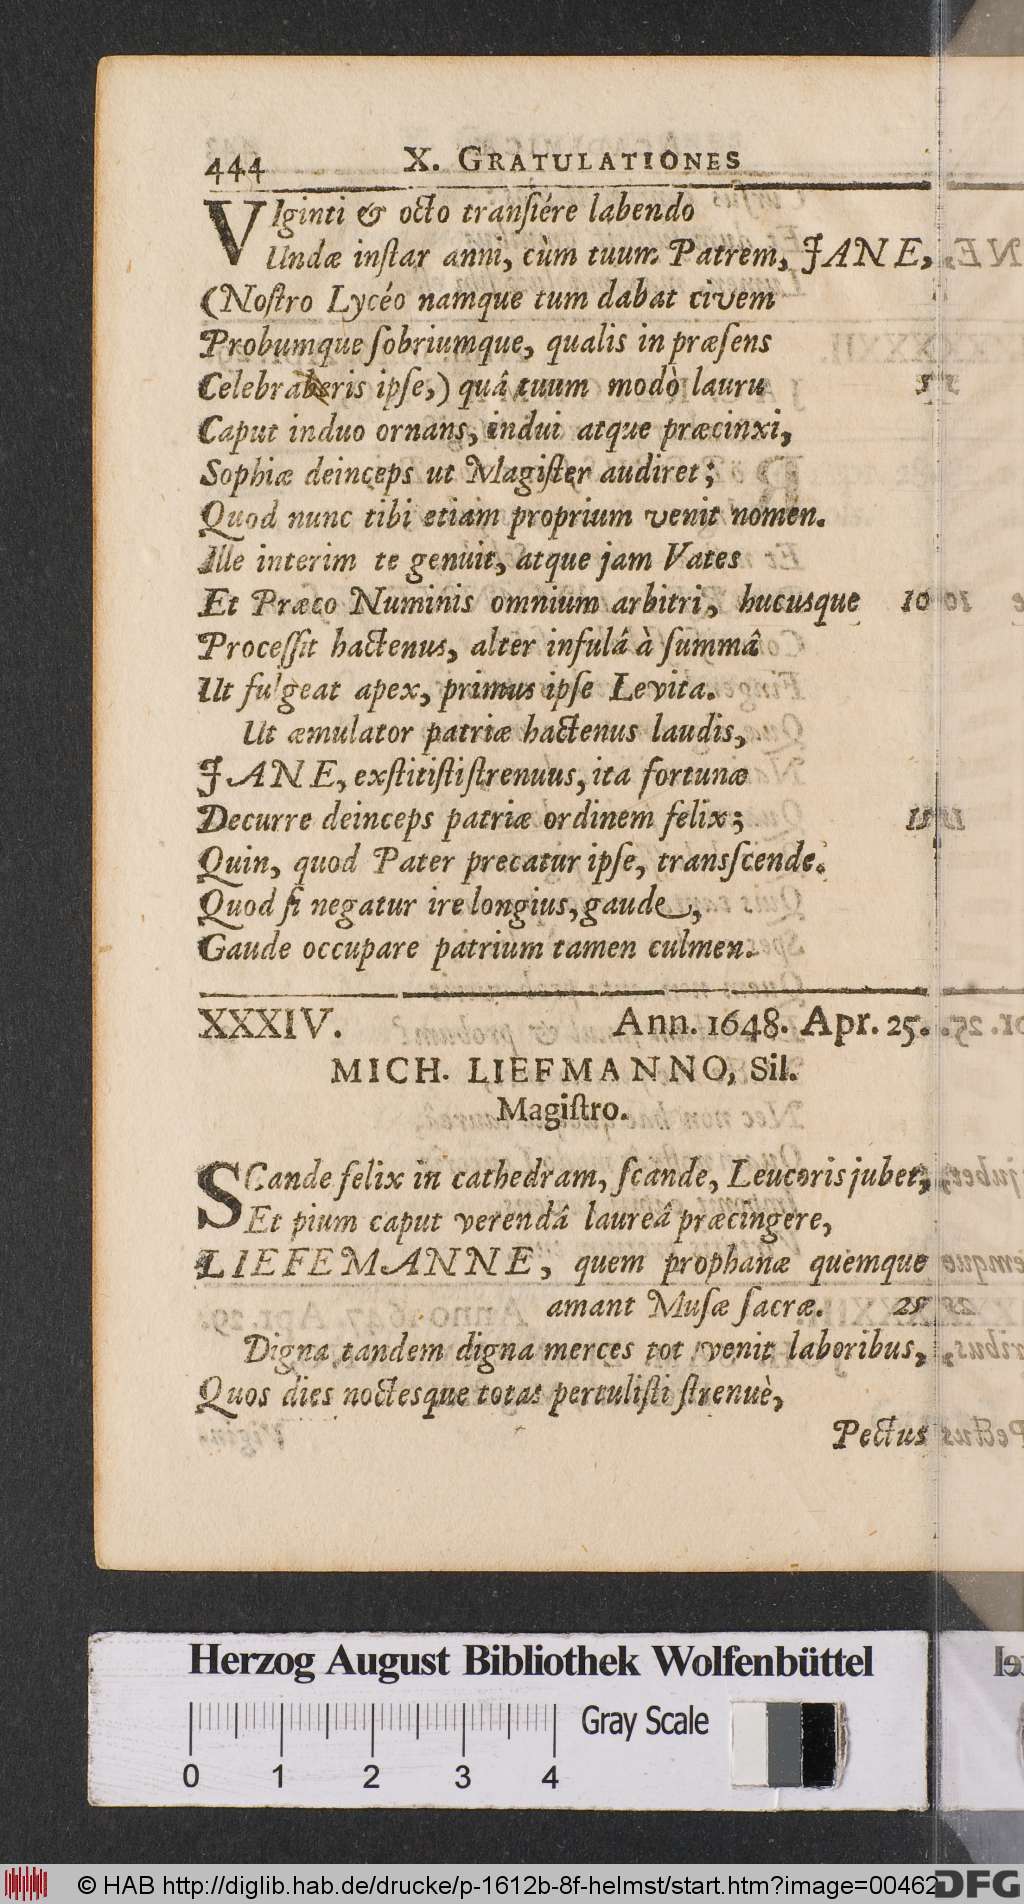 444 X. GRATULATIONES
VIginti & octo transiére labendo
Undæ instar anni, cùm tuum Patrem, JANE,
(Nostro Lycéo namque tum dabat civem
Probumque sobriumque, qualis in præsens
Celebraberis ipse,) quâ tuum modò lauru 5
Caput induo ornans, indui atque præcinxi,
Sophiæ deinceps ut Magister audiret;
Quod nunc tibi etiam proprium venit nomen.
Ille interim te genuit, atque jam Vates
Et Præco Numinis omnium arbitri, hucusque 10
Processit hactenus, alter infulâ à summâ
Ut fulgeat apex, primus ipse Levita.
Ut æmulator patriæ hactenus laudis,
JANE, exstitisti strenuus, ita fortunæ
Decurre deinceps patriæ ordinem felix; 15
Quin, quod Pater precatur ipse, transscende.
Quod si negatur ire longius, gaude,
Gaude occupare patrium tamen culmen.
XXXIV. Ann. 1648. Apr. 25.
MICH. LIEFMANNO, Sil.
Magistro.
SCande felix in cathedram, scande, Leucoris jubet,
Et pium caput verendâ laureâ præcingere,
LIEFEMANNE, quem prophanæ quemque
amant Musæ sacræ. 28
Digna tandem digna merces tot venit laboribus,
Quos dies noctesque totas pertulisti strenuè,
Pectus
Herzog August Bibliothek Wolfenbüttel
Gray Scale
0 1 2 3 4
© HAB http://diglib.hab.de/drucke/p-1612b-8f-helmst/start.htm?image=00462
DFG